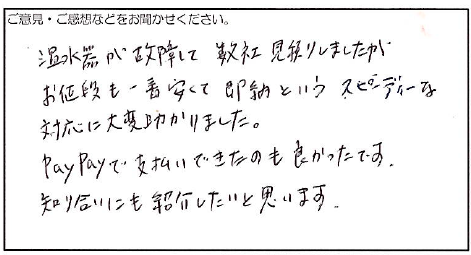 ご意見・ご感想などをお聞かせください。
温水器が故障して 数社 見積りしましたが
お値段も一番安くて 即納という スピーディーな
対応に大変助かりました。
PayPayで支払いできたのも良かったです.
知り合いにも紹介したいと思います.